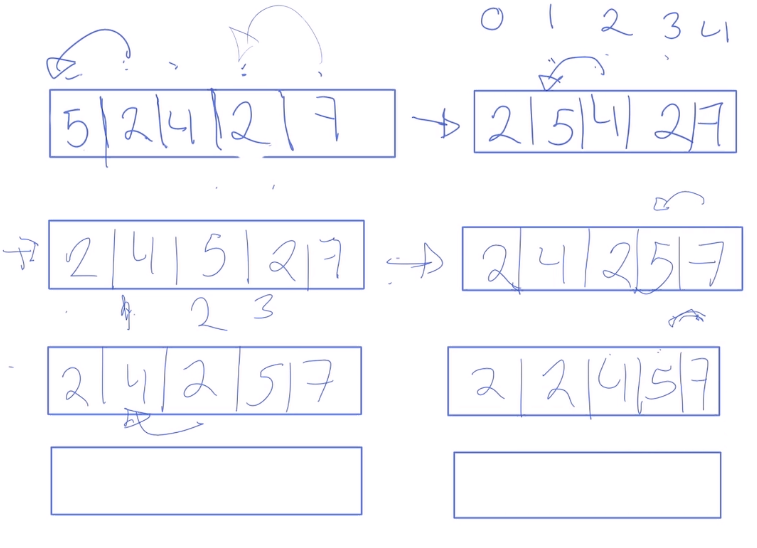 0 1 2 3 4
5 2 4 2 7
2 5 4 2 7
2 4 5 2 7
2 4 2 5 7
2 3
2 4 2 5 7
2 2 4 5 7